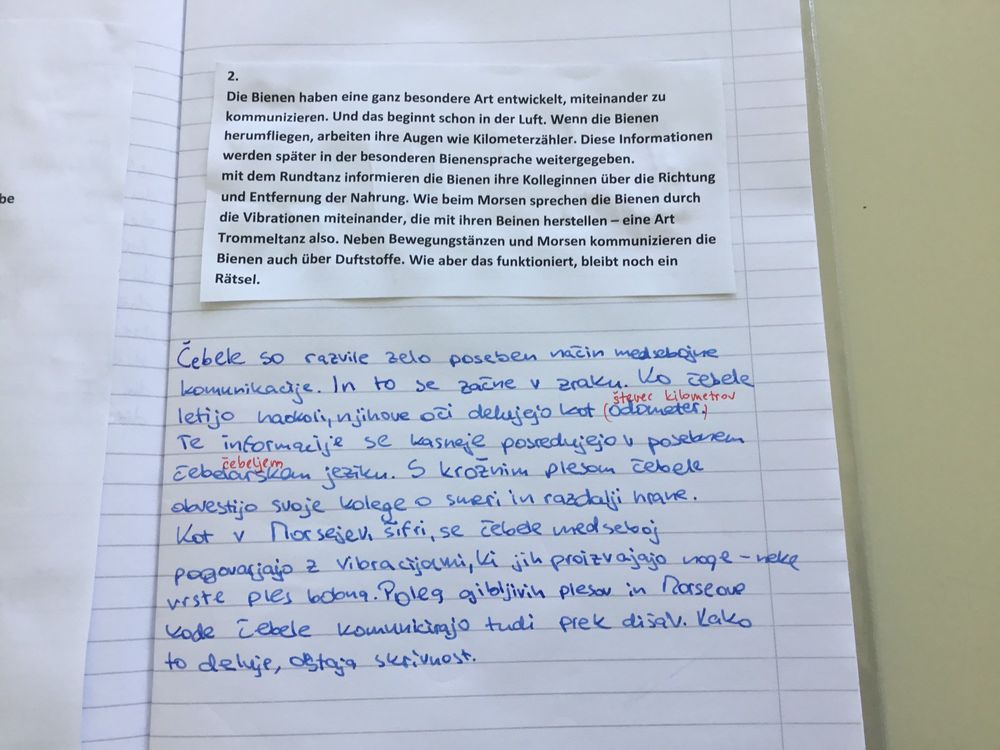 be
2.
Die Bienen haben eine ganz besondere Art entwickelt, miteinander zu
kommunizieren. Und das beginnt schon in der Luft. Wenn die Bienen
herumfliegen, arbeiten ihre Augen wie Kilometerzähler. Diese Informationen
werden später in der besonderen Bienensprache weitergegeben.
mit dem Rundtanz informieren die Bienen ihre Kolleginnen über die Richtung
und Entfernung der Nahrung. Wie beim Morsen sprechen die Bienen durch
die Vibrationen miteinander, die mit ihren Beinen herstellen – eine Art
Trommeltanz also. Neben Bewegungstänzen und Morsen kommunizieren die
Bienen auch über Duftstoffe. Wie aber das funktioniert, bleibt noch ein
Rätsel.
Čebele so razvile zelo poseben način medsebojne
komunikacije. In to se začne v zraku. Ko čebele
števec kilometrov
letijo naokoli, njihove oči delujejo kot (odometer.)
Te informacije se kasneje posredujejo v posebnem
čebeljem
čebelarskem jeziku. S krožnim plesom čebele
obvestijo svoje kolege o smeri in razdalji hrane.
Kot v Morsejevi šifri, se čebele medseboj
pogovarjajo z vibracijami, ki jih proizvajajo noge – neke
vrste ples bobna. Poleg gibljivih plesov in Morseove
kode čebele komunicirajo tudi prek dišav. Kako
to deluje, ostaja skrivnost.